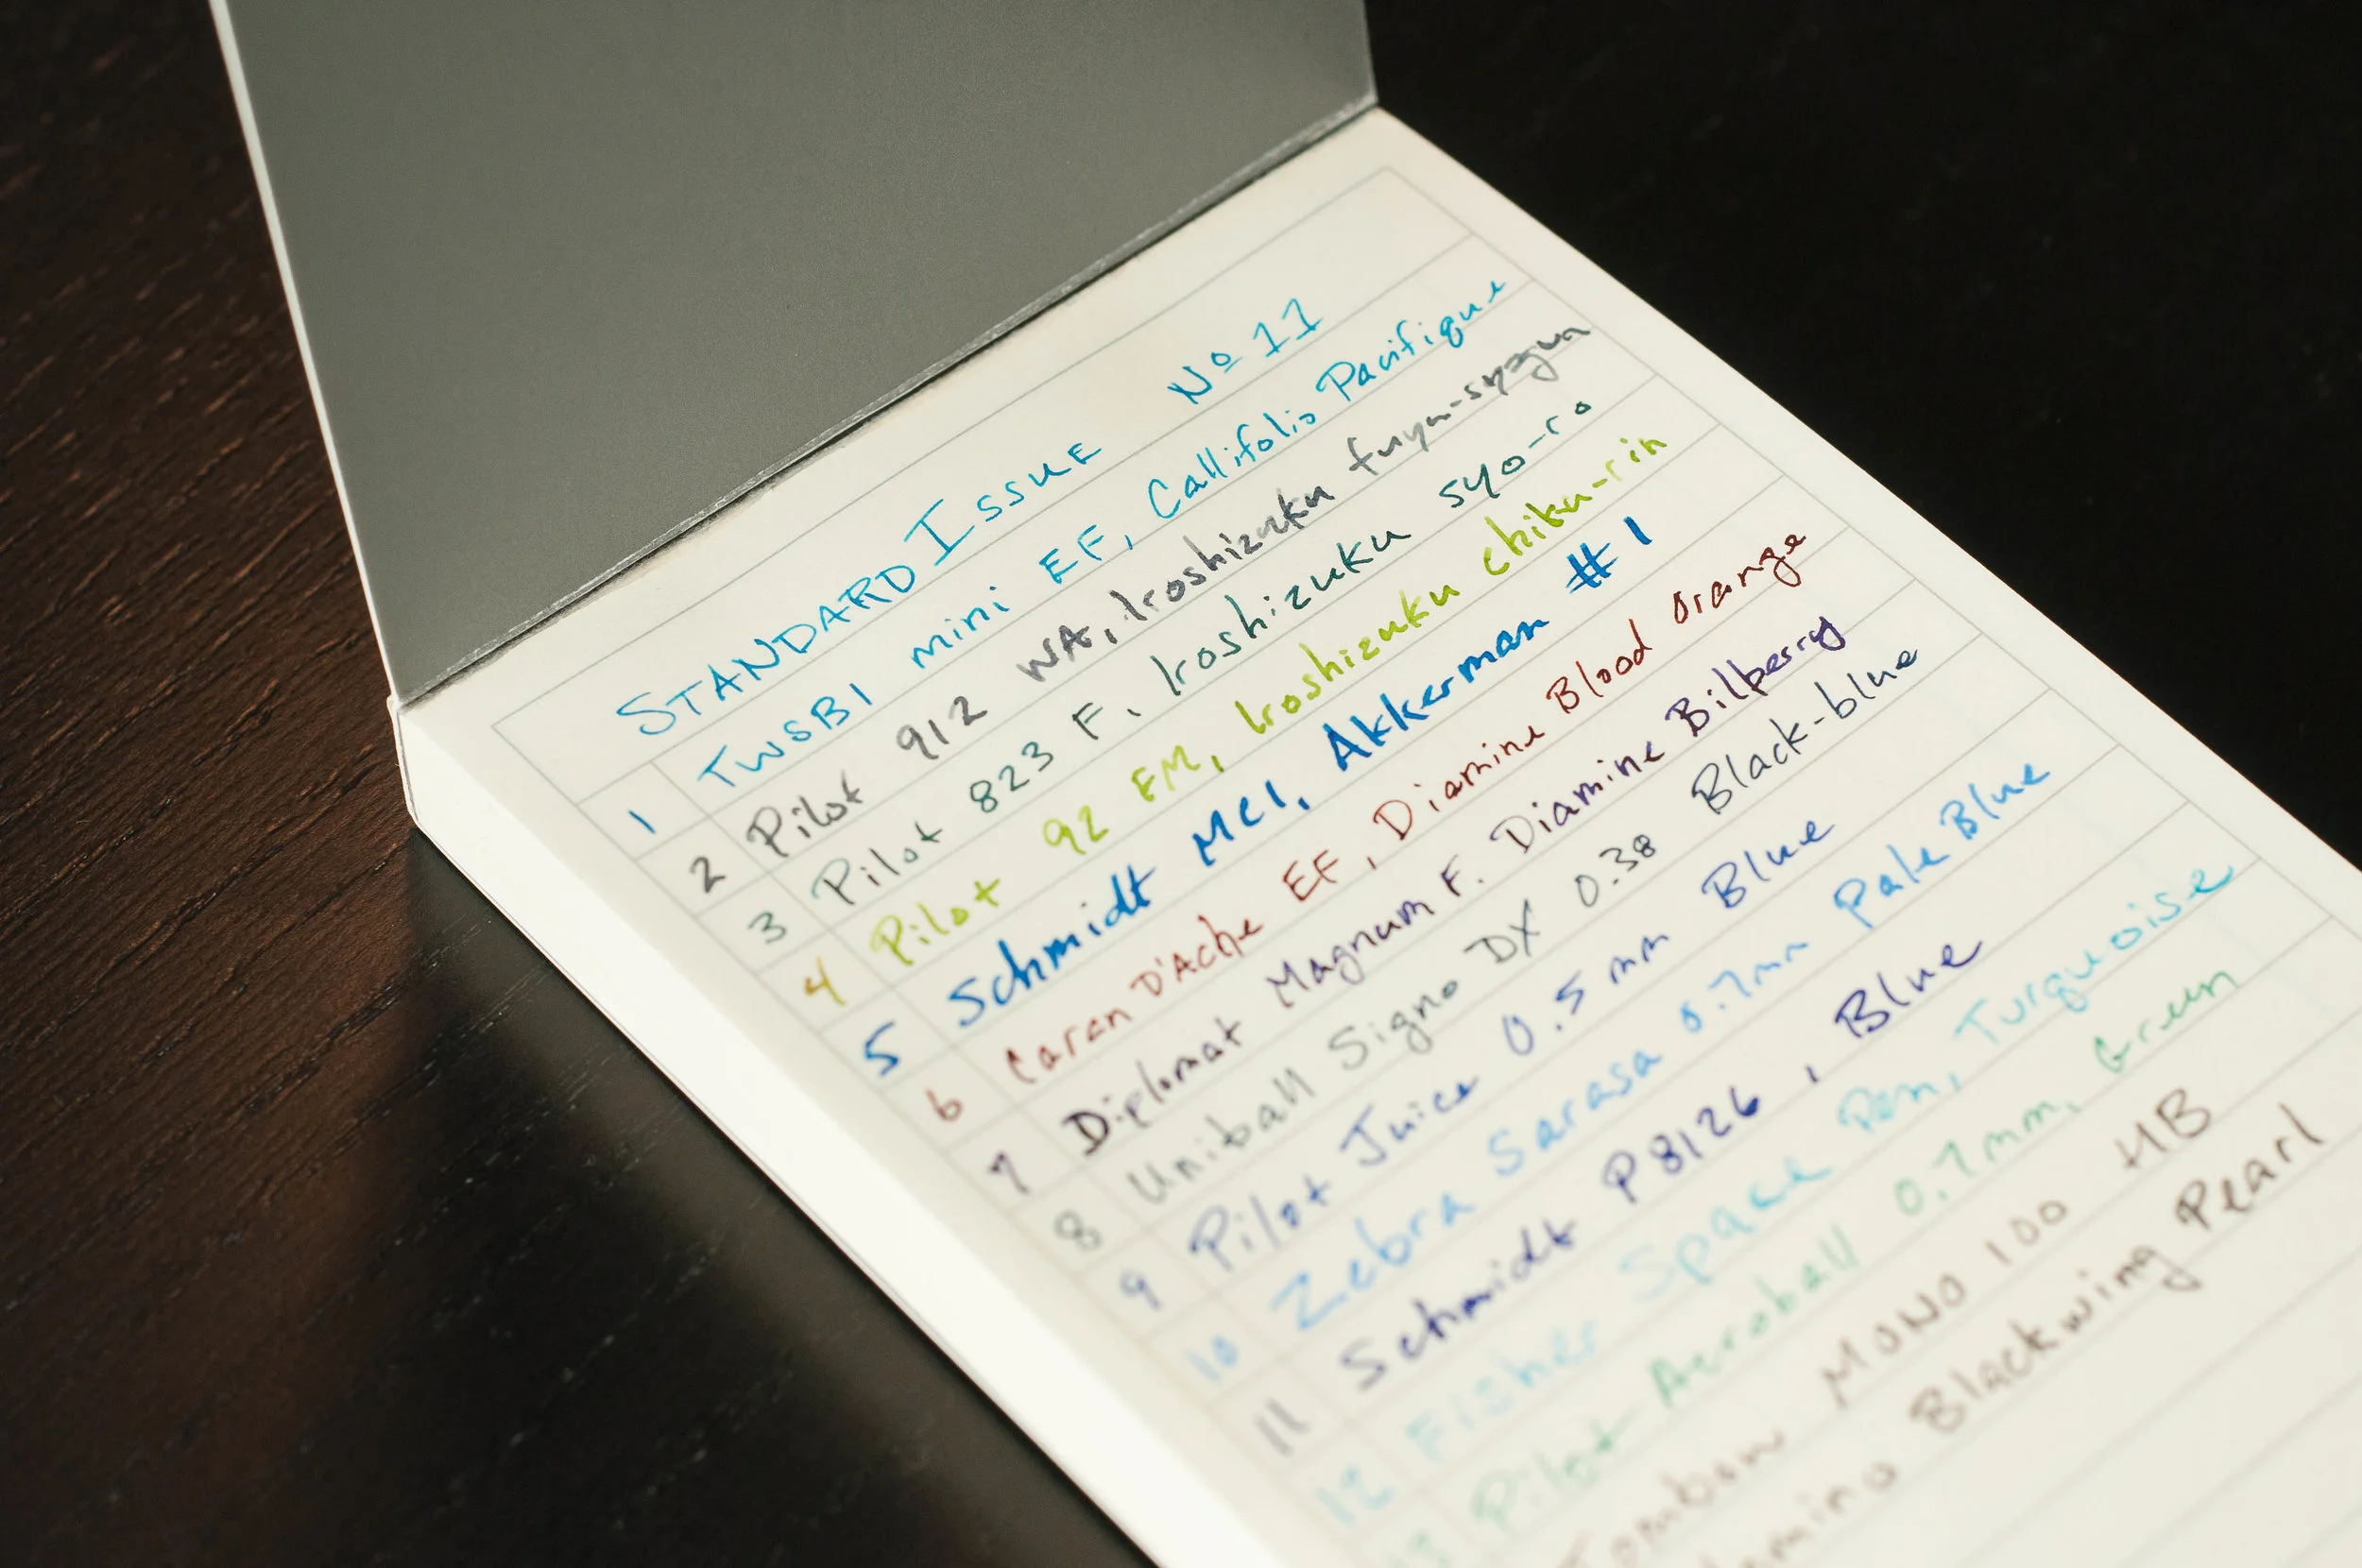 STANDARD ISSUE No 11
1 TWSBI mini EF, Callifolio Pacifique
2 Pilot 912 WA, Iroshizuku fuyu-syogun
3 Pilot 823 F, Iroshizuku syo-ro
4 Pilot 92 FM, Iroshizuku chiku-rin
5 Schmidt MC1, Akkerman #1
6 Caran D'Ache EF, Diamine Blood Orange
7 Diplomat Magnum F. Diamine Bilberry
8 Uniball Signo DX 0.38 Black-blue
9 Pilot Juice 0.5 mm Blue
10 Zebra Sarasa 0.7mm Pale Blue
11 Schmidt P8126, Blue
12 Fisher Space Pen, Turquoise
13 Pilot Acroball 0.7mm, Green
Tombow MONO 100 HB
Blackwing Pearl